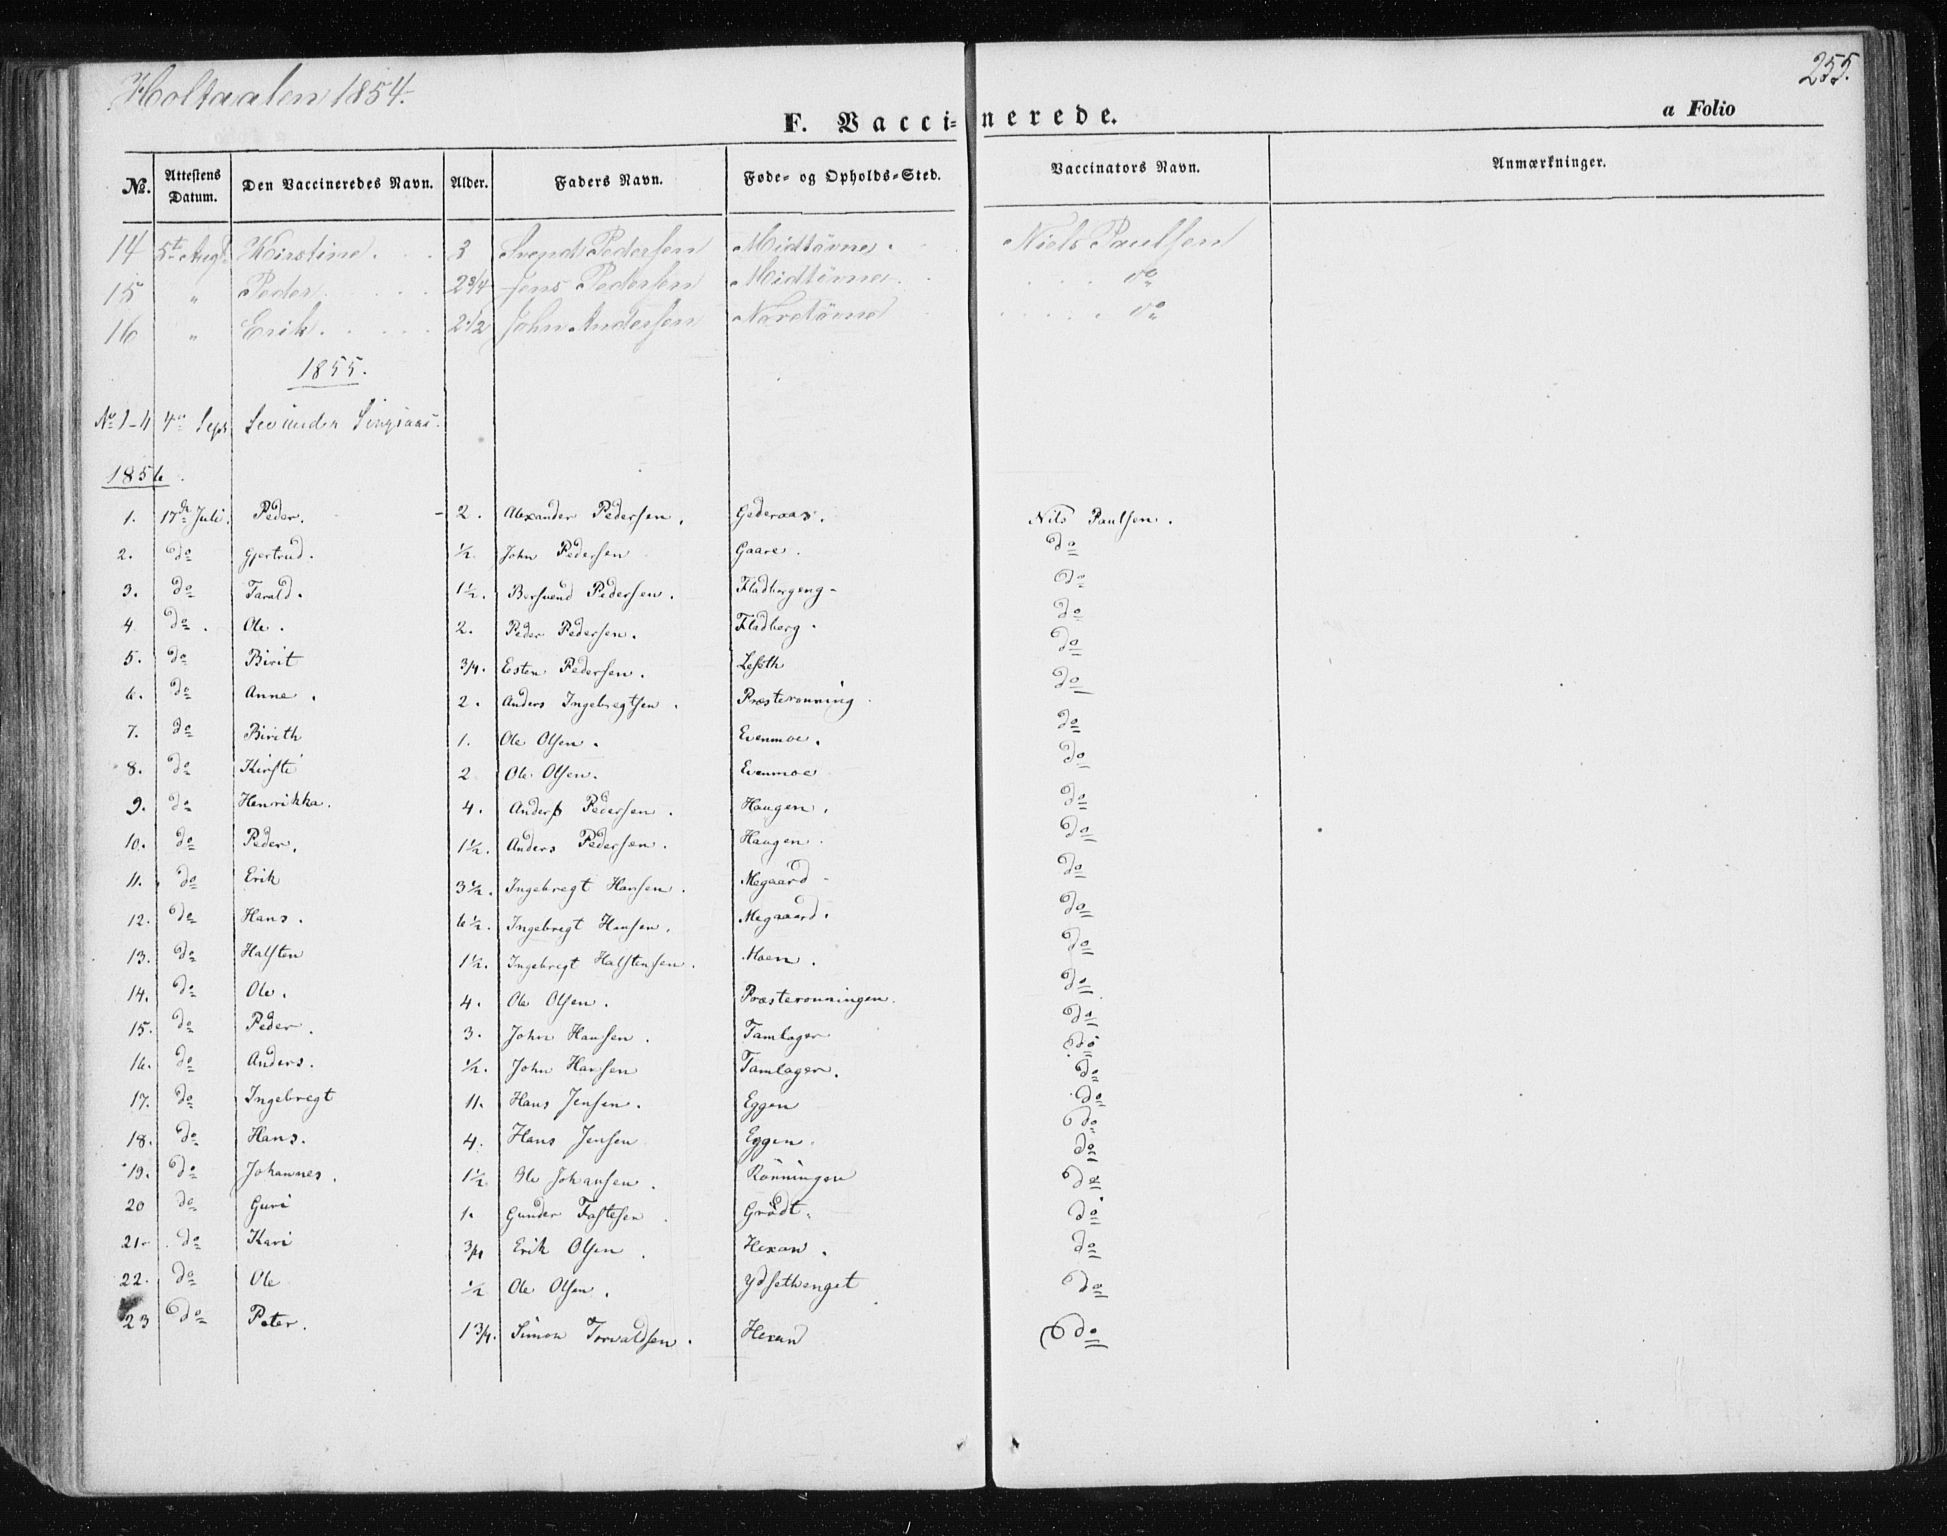 Holtaalen 1854.
255.
F. Vaccinerede.
a Folio
No. Attestens Datum. Den Vaccineredes Navn. Alder. Faders Navn. Føde- og Opholds-Sted. Vaccinators Navn. Anmærkninger.
14 5te Aug. Kirstine. 3 Svend Pedersen Midtövne. Niels Paulsen
15 " Peder. 2 3/4 Jens Pedersen Midtövne. do
16 " Erik. 2 1/2 John Andersen Nordövne do
1855.
No 1-4 4de Sept. See under Singsaas.
1856.
1. 17de Juli. Peder. - 2. Alexander Pedersen. Gederaas. Nils Paulsen.
2. do Gjertrud. 1/2. John Pedersen Gaare. do
3. do Tarald. 1 1/2. Bersvend Pedersen. Fladbergeng- do
4. do. Ole. 2. Peder Pedersen. Fladberg. do
5. do Birit 3/4. Eesten Pedersen. Lesoth do
6. do Anne. 2. Anders Ingebregtsen. Præsterønning. do
7. do Birith 1. Ole Olsen. Evenmoe. do
8. do Kirsti 2 Ole Olsen. Evenmoe do
9. do Henrikka. 4. Anders Pedersen. Haugen. do
10. do Peder. 1 1/2. Anders Pedersen. Haugen. do
11. do Erik 3 1/2. Ingebregt Hansen. Megaard- do
12. do Hans. 6 1/2. Ingebregt Hansen. Megaard. do
13. do Halsten 1 1/2. Ingebregt Halstensen. Moen. do
14. do Ole. 4. Ole Olsen. Præsterønningen. do
15. do Peder. 3. John Hansen. Tamlager do
16. do Anders. 1/2. John Hansen Tamlager. do
17. do Ingebregt 11. Hans Jensen. Eggen do
18. do Hans. 4. Hans Jensen Eggen. do
19. do Johannes. 1 1/2 Ole Johansen. Rönningen do
20 do Guri 1. Gunder Fastesen. Grødt. do
21. do Kari 3/4 Erik Olsen. Hexan. do
22. do Ole 1/2 Ole Olsen. Ydsethenget do
23 do Peter. 1 3/4. Simon Torvaldsen. Hexan do